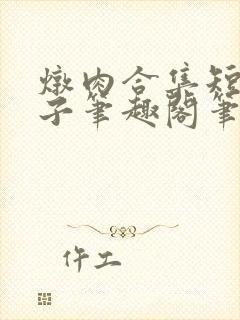 燉肉合集短
子筆趣閣筆
仵工